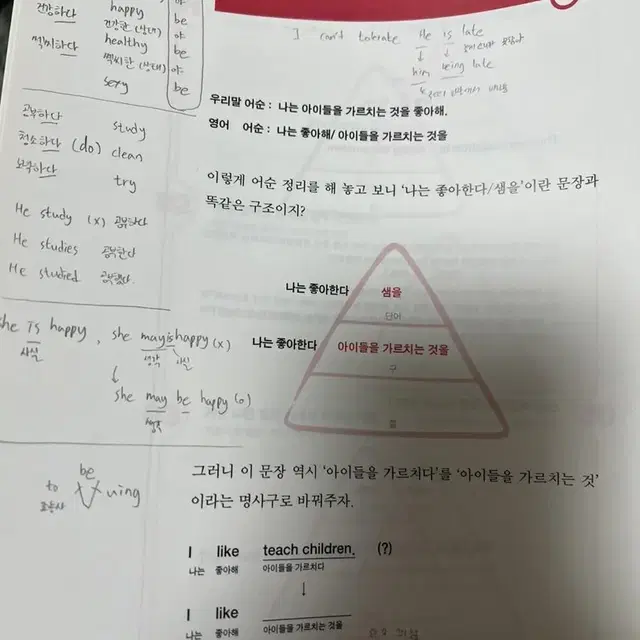 건강하다 happy 야
건강한 (상태) be
healthy 야
섹시하다 be
섹시한 (상태) 야
sexy be
공부하다 study
청소하다 (do) clean
노력하다 try
He study (x) 공부하다
He studies 공부한다
He studied 공부했다.
she is happy, she may is happy (x)
사실 생각 사실
↓
she may be happy (o)
생각
be
to ing
조동사
I can't tolerate He is late
↓ ↓
him being late
우리말 어순 : 나는 아이들을 가르치는 것을 좋아해.
영어 어순 : 나는 좋아해/ 아이들을 가르치는 것을
이렇게 어순 정리를 해 놓고 보니 '나는 좋아한다/샘을'이란 문장과
똑같은 구조이지?
나는 좋아한다 샘을
단어
나는 좋아한다 아이들을 가르치는 것을
구
절
그러니 이 문장 역시 '아이들을 가르치다'를 '아이들을 가르치는 것'
이라는 명사구로 바꿔주자.
I like teach children. (?)
나는 좋아해 아이들을 가르치다
↓
I like
나는 좋아해 아이들을 가르치는 것을